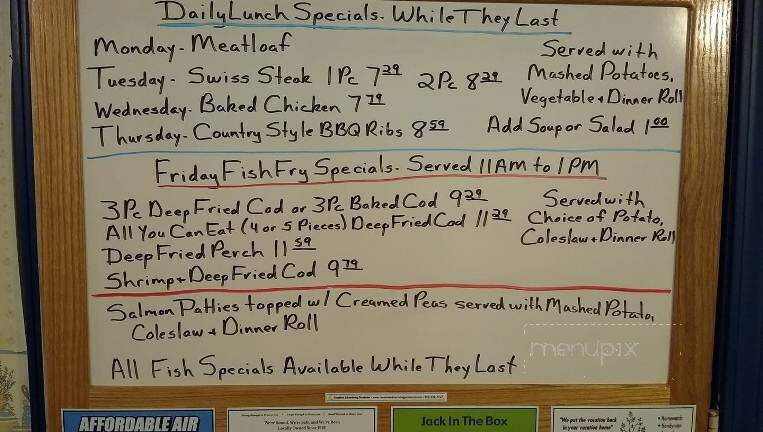 Daily Lunch Specials. While They Last
Monday - Meatloaf
Tuesday - Swiss Steak 1Pc 7.39 2Pc 8.39
Wednesday - Baked Chicken 7.79
Thursday - Country Style BBQ Ribs 8.59
Served with
Mashed Potatoes,
Vegetable + Dinner Roll
Add Soup or Salad 1.00
Friday Fish Fry Specials. Served 11AM to 1PM
3Pc Deep Fried Cod or 3Pc Baked Cod 9.29
All You Can Eat (4 or 5 Pieces) Deep Fried Cod 11.29
Deep Fried Perch 11.59
Shrimp + Deep Fried Cod 9.79
Served with
Choice of Potato,
Coleslaw + Dinner Roll
Salmon Patties topped w/ Creamed Peas served with Mashed Potato,
Coleslaw + Dinner Roll
All Fish Specials Available While They Last
menupix
AFFORDABLE AIR
Jack In The Box
"We put the vacation back
in your vacation home"